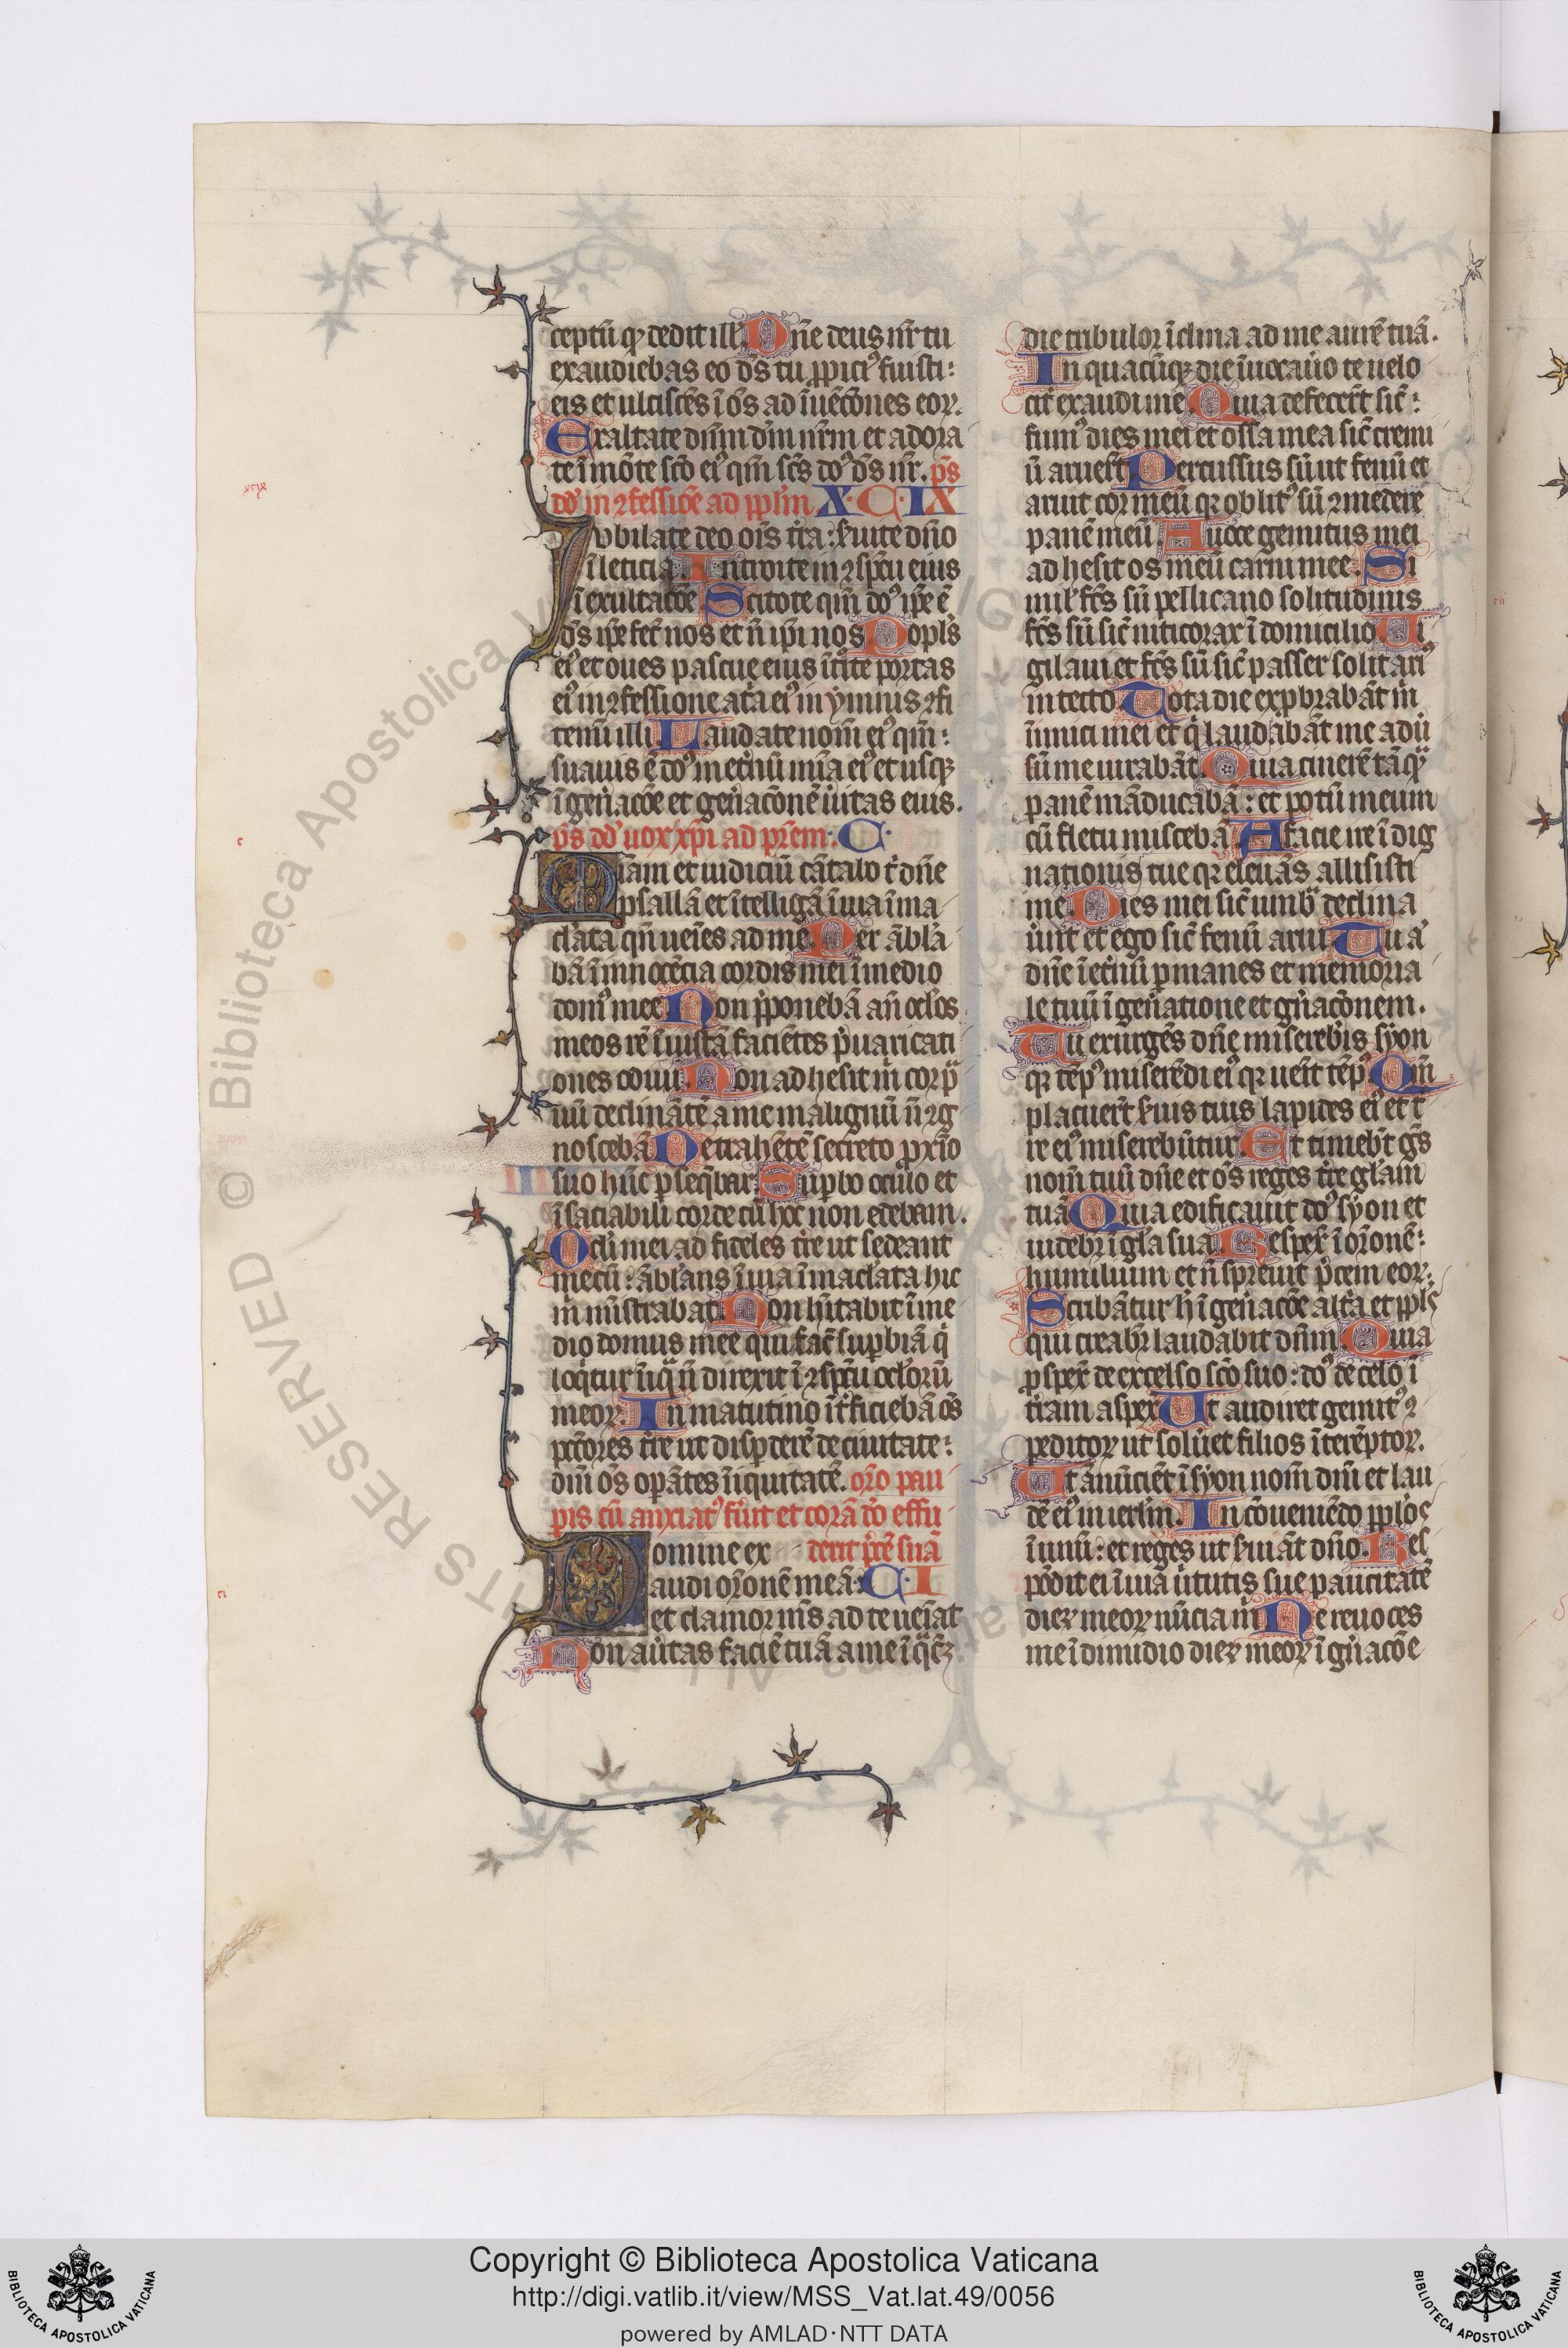 ceptū qͥ dedit illi. Dn̄e deus nr̄ tu
exaudiebas eos ds̄ tu ꝓpiciꝰ fuisti:
eis et ulcisces̄ ī os̄ ad īuēcōnes eoꝝ.
Exaltate dn̄m dm̄ nr̄m et adora
te ī mōte scō eiꝰ qm̄ scs̄ doꝰ ds̄ nr̄. ps̄
dd̄ in ꝯfessiōe ad ppl̄m X·C·IX
Jvbilate deo ois̄ tr̄a: ẜuite dn̄o
ī leticia. Introite in ꝯspc̄tu eius
ī exultacōe. Scitote qm̄ doꝰ ip̄e ē
ds̄ ip̄e fec̄ nos et n̄ ip̄i nos. Popls̄
eiꝰ et oues pascue eius ītͦite portas
eiꝰ in ꝯfessione at̄a eiꝰ in ymnis ꝯfi
temī illi. Laudate nom̄ eiꝰ qm̄:
suauis ē doꝰ in et̄nū mīa eiꝰ et usqꝫ
ī gen̄acōe et gen̄acōnē ūitas eius.
ps̄ dd̄ uox xp̄i ad pr̄em· C·
Miam et iudiciū cātabo t̄ dn̄e
psallā et ītelligā ī uia īma
cl̄ata qn̄ uenies̄ ad me. Per ābla
bā ī innocēcia cordis mei ī medio
domꝰ mee. Non p̄ponebā an̄ ocl̄os
meos rē īiustā faciētes p̄uaricati
ones odiui. Non adhesit m̄ cor pͣ
uū declinātē a me malignū n̄ ꝯg
noscebā. Detrahētē secreto ꝓxīo
suo hūc ꝑseq̄bar. Supbo oculo et
īsaciabili corde cū hoc non edebam.
Ocl̄i mei ad fideles tr̄e ut sedeant
mecū: āblans̄ ī uia īmacl̄ata hic
m̄ mīstrabat. Non hītabit ī me
dio domus mee qui fac̄ supbiā qͥ
loq̄tur inͥqͣ n̄ direxit ī ꝯspc̄tu ocl̄orū
meoꝝ. In matutino īt̄ficiebā os̄
pct̄ores tr̄e ut dispderē de ciuitate:
dn̄i os̄ opātes īiquitatē. orō pau
peris cū anxiatꝰ fūit et corā dō effu
Domine ex derit p̄cē suā
audi orōnē meā: C·I
et clamor ms̄ ad te ueniat
Non aūtas faciē tuā a me ī qͣcūqꝫ
die tribulor īclina ad me aurē tuā.
In quacūqꝫ die īuocaūo te uelo
cit̄ exaudi me. Quia defecer̄t sic̄:
fumꝰ dies mei et ossa mea sic̄ cremi
ū aruer̄t. Percussus sū ut fenū et
aruit cor meū qꝛ oblitꝰ sū ꝯmedere
panē meū. A uoce gemitus mei
adhesit os meū carni mee. Si
mil̄ fcs̄ sū pellicano solitudinis
fcs̄ sū sic̄ niticorax ī domicilio. Ui
gilaui et fcs̄ sū sic̄ passer solitariꝰ
in tecto. Tota die expbrabāt m̄
inimici mei et qͥ laudabāt me adū
sū me iurabāt. Quia cinerē tāqͣ
panē māducabā: et potū meum
cū fletu miscebā. A facie ire īdig
nationis tue qꝛ eleuās allisisti
me. Dies mei sic̄ umbͣ declina
ūnt et ego sic̄ fenū arui. Tu a͞
dn̄e īet̄nū pmanes et memoria
le tuū ī gen̄atione et gn̄acōnem.
Tu exurgēs dn̄e misereb̄is syon
qꝛ tēpꝰ miserēdi eiꝰ qꝛ uenit̄ tēpꝰ. Qm̄
placuer̄t ẜuis tuis lapides eiꝰ et t̄
re eiꝰ miserebūtur. Et timebt̄ gēs
nom̄ tuū dn̄e et os̄ reges tr̄e gl̄am
tuā. Quia edificauit doꝰ syon et
uidebr̄ ī gl̄a sua. Respex̄ ī orōnē:
humilium et n̄ spreuit p̄cem eoꝝ:
Scribātur h̄ ī gen̄acōe alta et ppls̄
qui creabr̄ laudabit dn̄m. Quia
pspex̄ de excelso scō suo: doꝰ de celo ī
tr̄am aspex̄. Ut audiret gemitꝰ ꝯ
peditoꝝ ut solūet filios īterēptoꝝ.
Ut ānūciēt ī syon nom̄ dn̄i et lau
dē eiꝰ in ierl̄m. In cōueniēdo ppl̄os
ī unū: et reges ut ẜuiāt dn̄o. Res
pōdit ei ī uia ūtutis sue paucitatē
dieꝝ meoꝝ nūcia m̄. Ne reuoces
me ī dimidio dieꝝ meoꝝ ī gn̄acōe
Copyright © Biblioteca Apostolica Vaticana
http://digi.vatlib.it/view/MSS_Vat.lat.49/0056
powered by AMLAD·NTT DATA
BIBLIOTECA APOSTOLICA VATICANA
BIBLIOTECA APOSTOLICA VATICANA